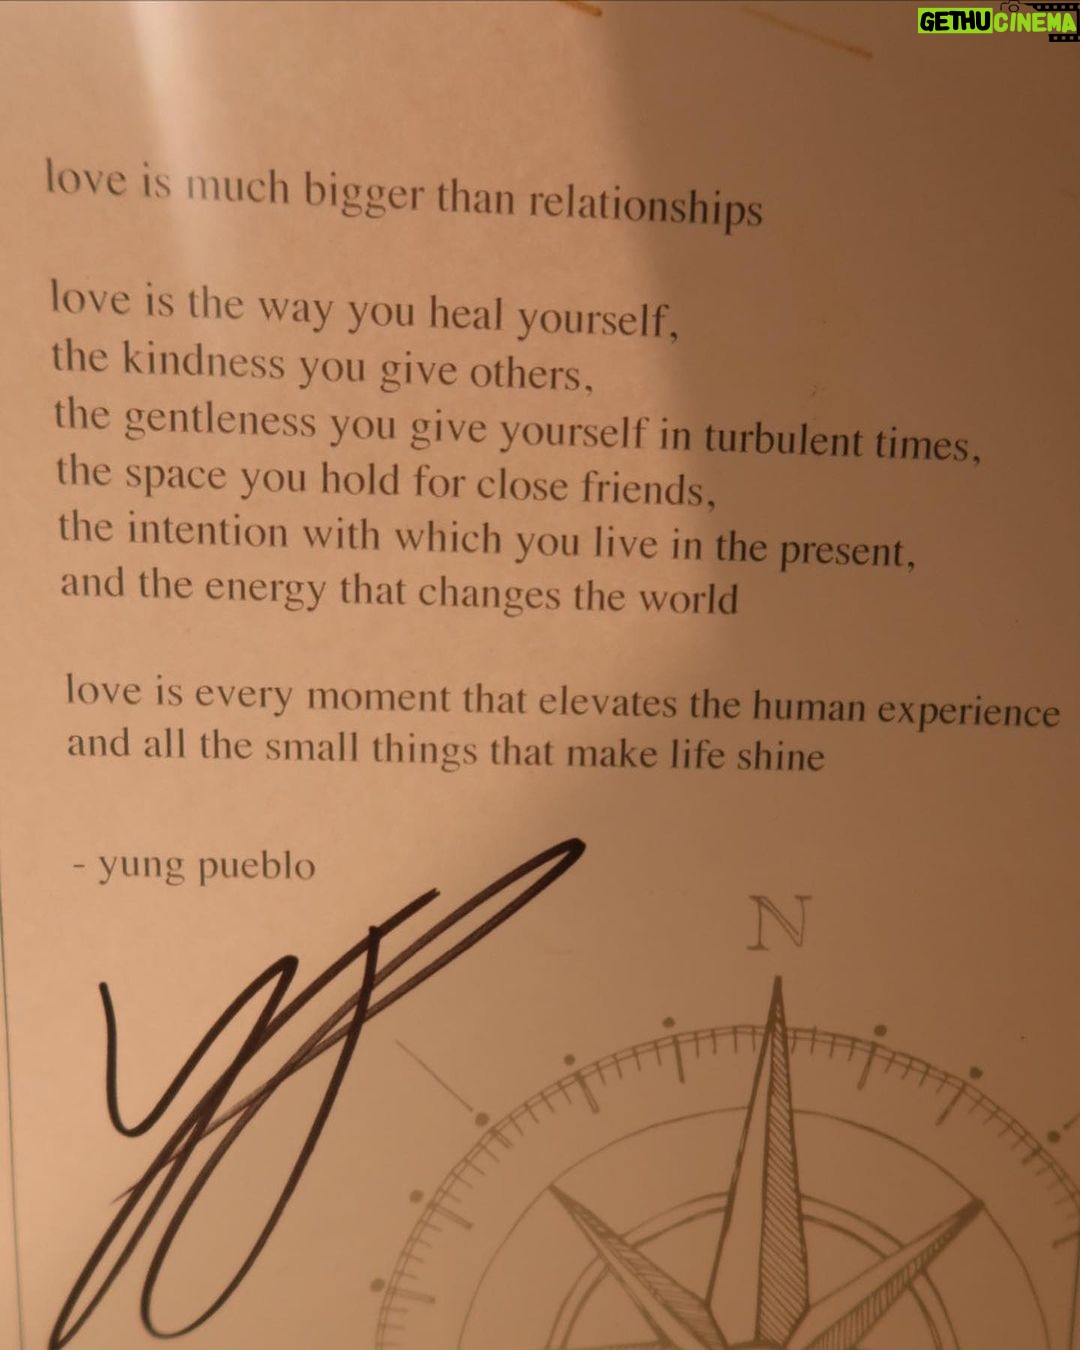 GETHUCINEMA
love is much bigger than relationships
love is the way you heal yourself,
the kindness you give others,
the gentleness you give yourself in turbulent times,
the space you hold for close friends,
the intention with which you live in the present,
and the energy that changes the world
love is every moment that elevates the human experience
and all the small things that make life shine
- yung pueblo
N